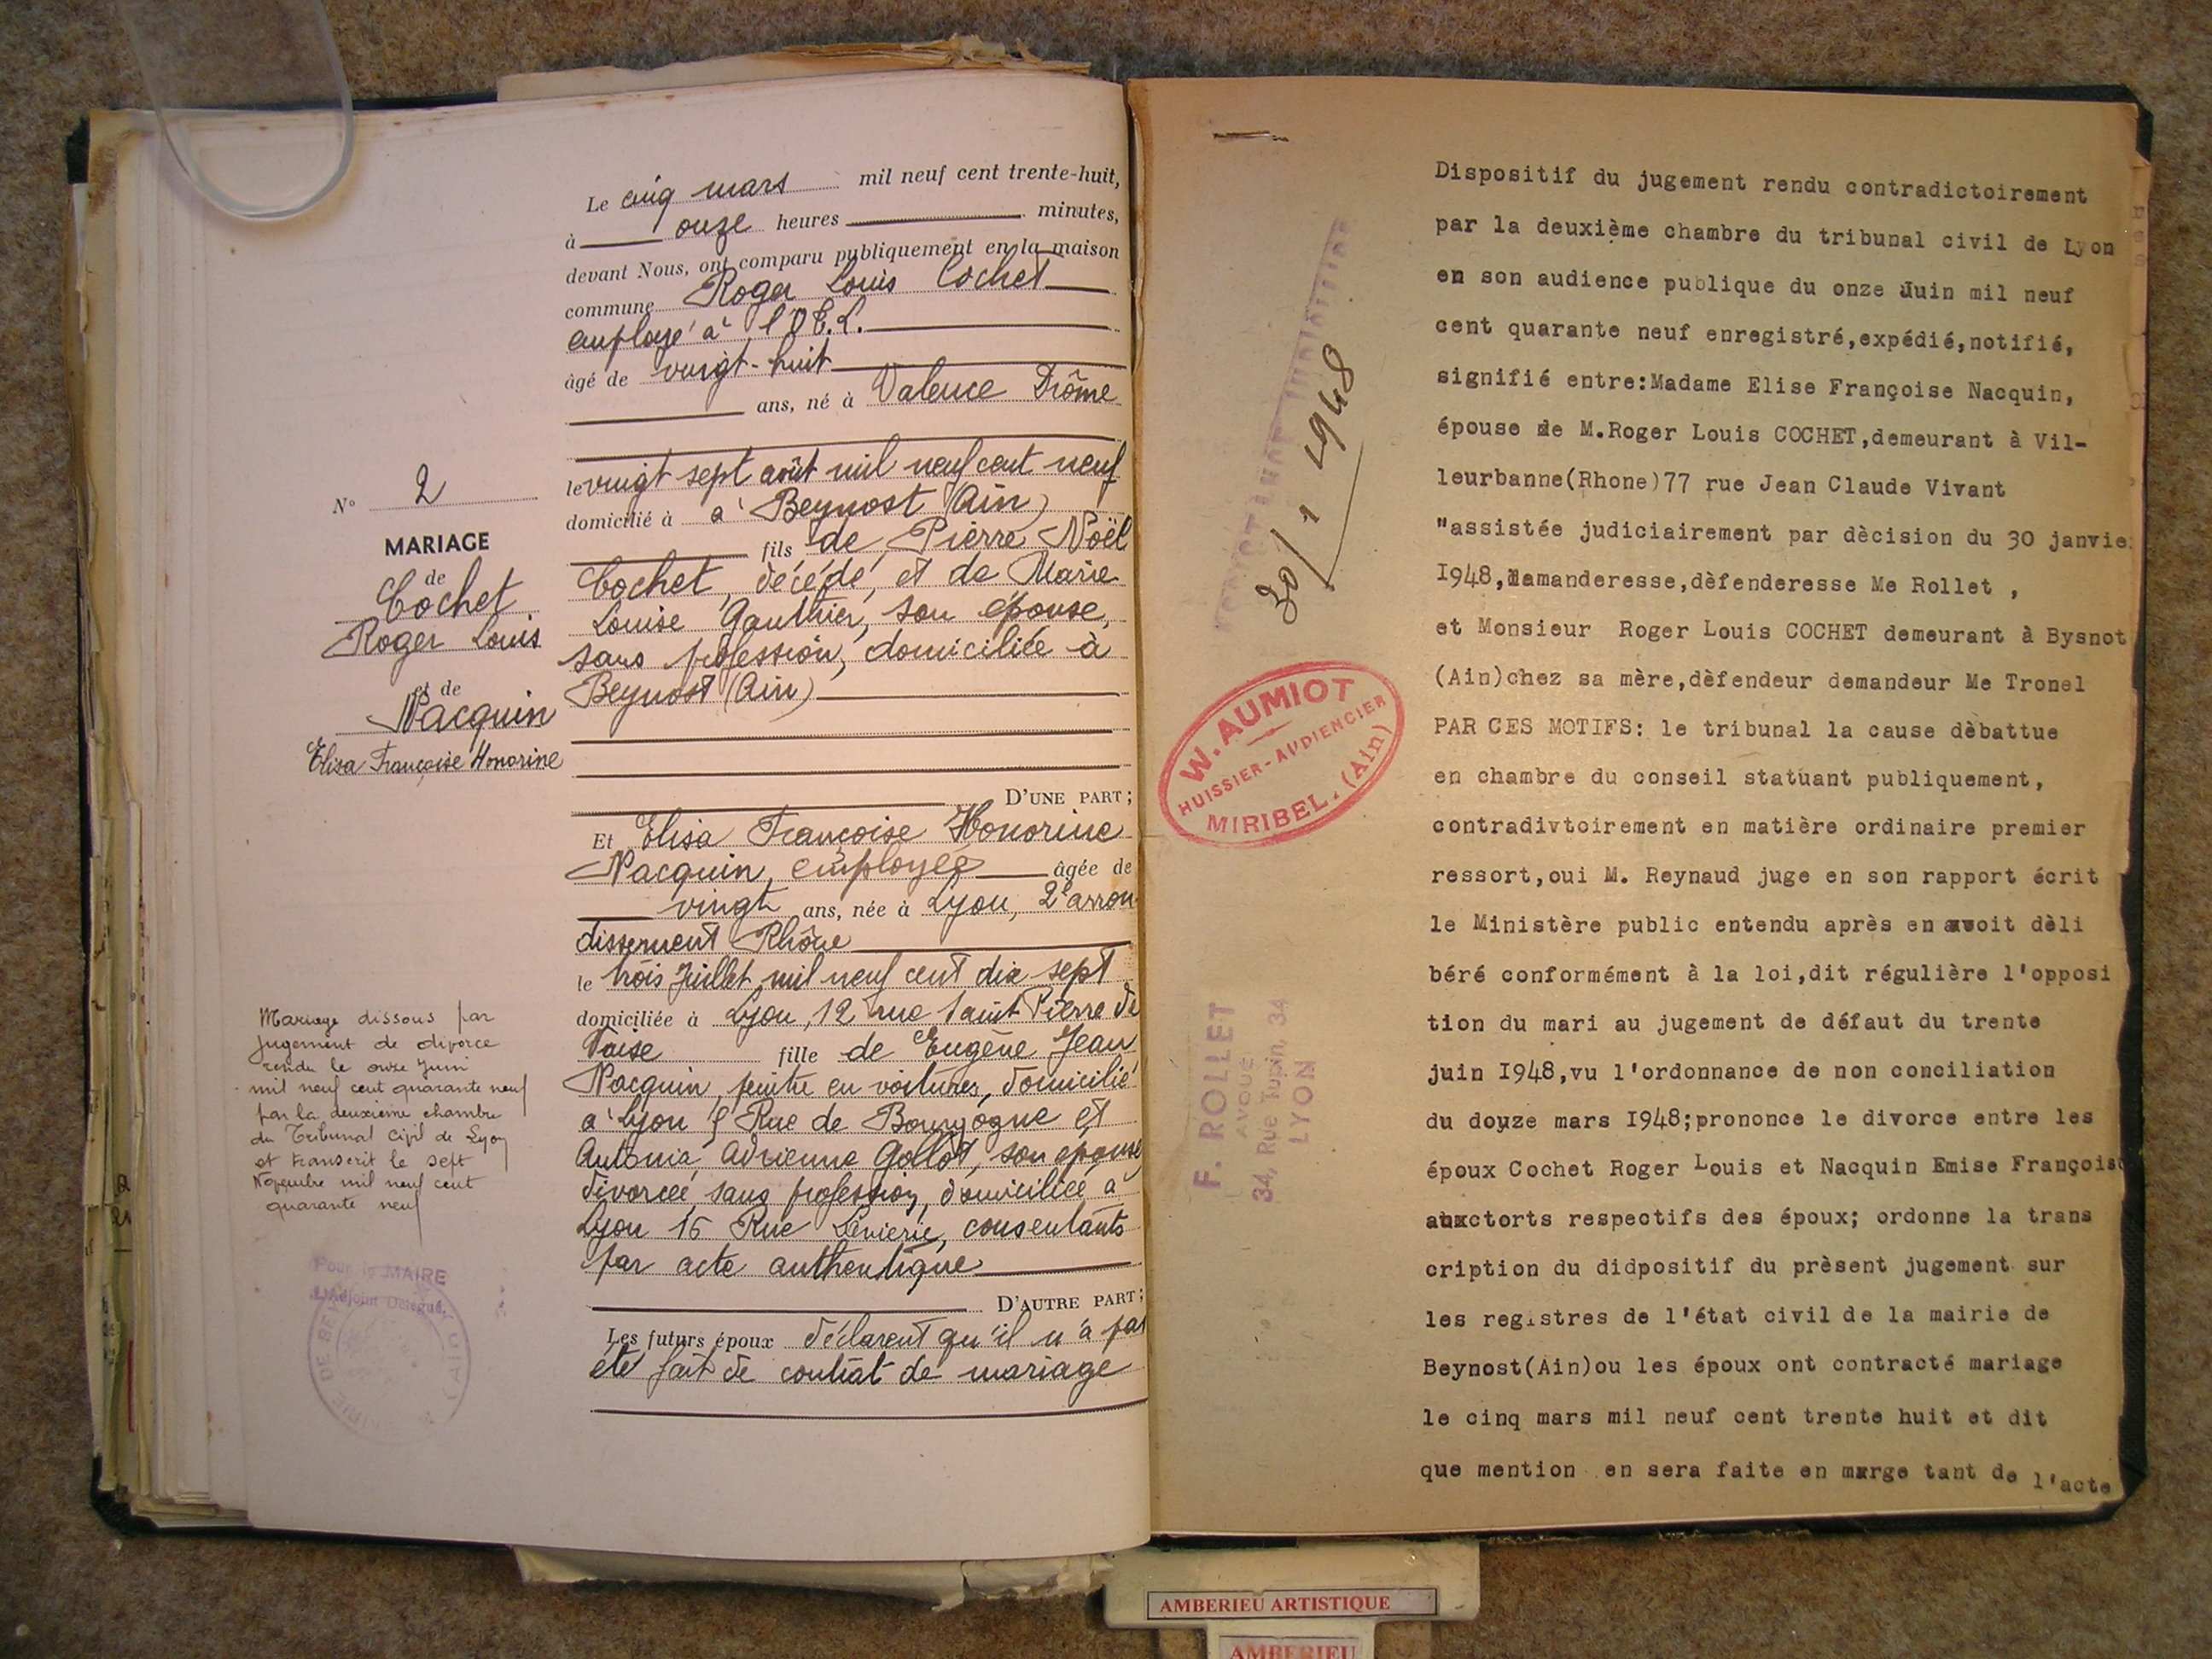 Le cinq mars mil neuf cent trente-huit,
à onze heures minutes,
devant Nous, ont comparu publiquement en la maison
commune Roger Louis Cochet
employé à l'O.T.L.
âgé de vingt-huit
ans, né à Valence Drôme
le vingt sept août mil neuf cent neuf
domicilié à à Beynost (Ain)
fils de Pierre Noël
Cochet, décédé, et de Marie
Louise Gauthier, son épouse,
sans profession, domiciliée à
Beynost (Ain)
D'UNE PART;
Et Elisa Françoise Honorine
Nacquin, employée âgée de
vingt ans, née à Lyon, 2e arron
dissement Rhône
le trois Juillet mil neuf cent dix sept
domiciliée à Lyon, 12 rue Saint Pierre de
Vaise fille de Eugène Jean
Nacquin, peintre en voitures, domicilié
à Lyon Rue de Bourgogne et
Antonia Adrienne Gollot, son épouse
divorcée sans profession, domiciliée à
Lyon 16 Rue consentants
par acte authentique
D'AUTRE PART;
Les futurs époux déclarent qu'il n'a pas
été fait de contrat de mariage
N° 2
MARIAGE
de
Cochet
Roger Louis
et de
Nacquin
Elisa Françoise Honorine
Mariage dissous par
jugement de divorce
rendu le onze Juin
mil neuf cent quarante neuf
par la deuxième chambre
du Tribunal Civil de Lyon
et transcrit le sept
Novembre mil neuf cent
quarante neuf
Pour le MAIRE
L'Adjoint Délégué,
30/1 1948
W. AUMIOT
HUISSIER-AUDIENCIER
MIRIBEL. (Ain)
F. ROLLET
AVOUÉ
34, Rue Tupin, 34
LYON
Dispositif du jugement rendu contradictoirement
par la deuxième chambre du tribunal civil de Lyon
en son audience publique du onze Juin mil neuf
cent quarante neuf enregistré,expédié,notifié,
signifié entre:Madame Elise Françoise Nacquin,
épouse de M.Roger Louis COCHET,demeurant à Vil-
leurbanne(Rhone)77 rue Jean Claude Vivant
"assistée judiciairement par dècision du 30 janvier
I948,demanderesse,dèfenderesse Me Rollet ,
et Monsieur Roger Louis COCHET demeurant à Bysnot
(Ain)chez sa mère,dèfendeur demandeur Me Tronel
PAR CES MOTIFS: le tribunal la cause dèbattue
en chambre du conseil statuant publiquement,
contradivtoirement en matière ordinaire premier
ressort,oui M. Reynaud juge en son rapport écrit
le Ministère public entendu après en avoit dèli
béré conformément à la loi,dit régulière l'opposi
tion du mari au jugement de défaut du trente
juin I948,vu l'ordonnance de non conciliation
du douze mars I948;prononce le divorce entre les
époux Cochet Roger Louis et Nacquin Emise Françoise
aux torts respectifs des époux; ordonne la trans
cription du didpositif du prèsent jugement sur
les registres de l'état civil de la mairie de
Beynost(Ain)ou les époux ont contracté mariage
le cinq mars mil neuf cent trente huit et dit
que mention en sera faite en marge tant de l'acte
AMBERIEU ARTISTIQUE
AMBERIEU